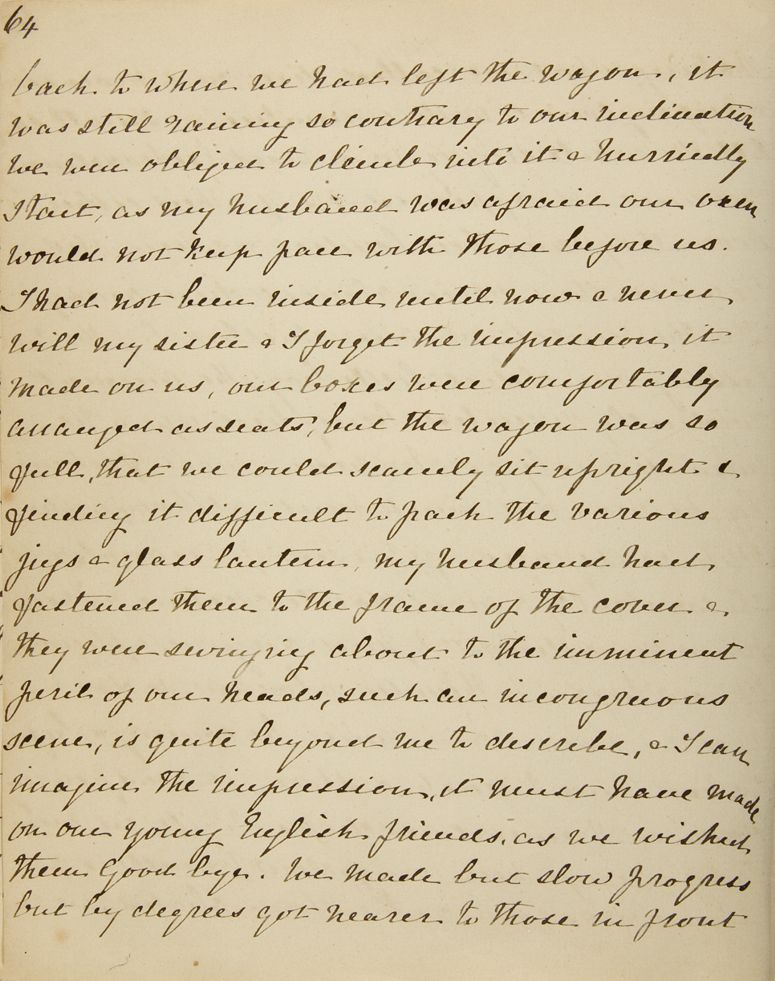 64
back to where we had left the wagon, it
was still raining so contrary to our inclination
we were obliged to climb into it & hurriedly
start, as my husband was afraid our oxen
would not keep pace with those before us.
I had not been inside until now & never
will my sister & I forget the impression, it
made on us, our boxes were comfortably
arranged as seats, but the wagon was so
full, that we could scarcely sit upright &
finding it difficult to pack the various
jugs & glass lantern, my husband had,
fastened them to the frame of the cover &
they were swinging about to the imminent
peril of our heads, such an incongruous
scene, is quite beyond me to describe, & I can
imagine the impression, it must have made
on our young English friends, as we wished
them Good bye. We made but slow progress
but by degrees got nearer to those in front